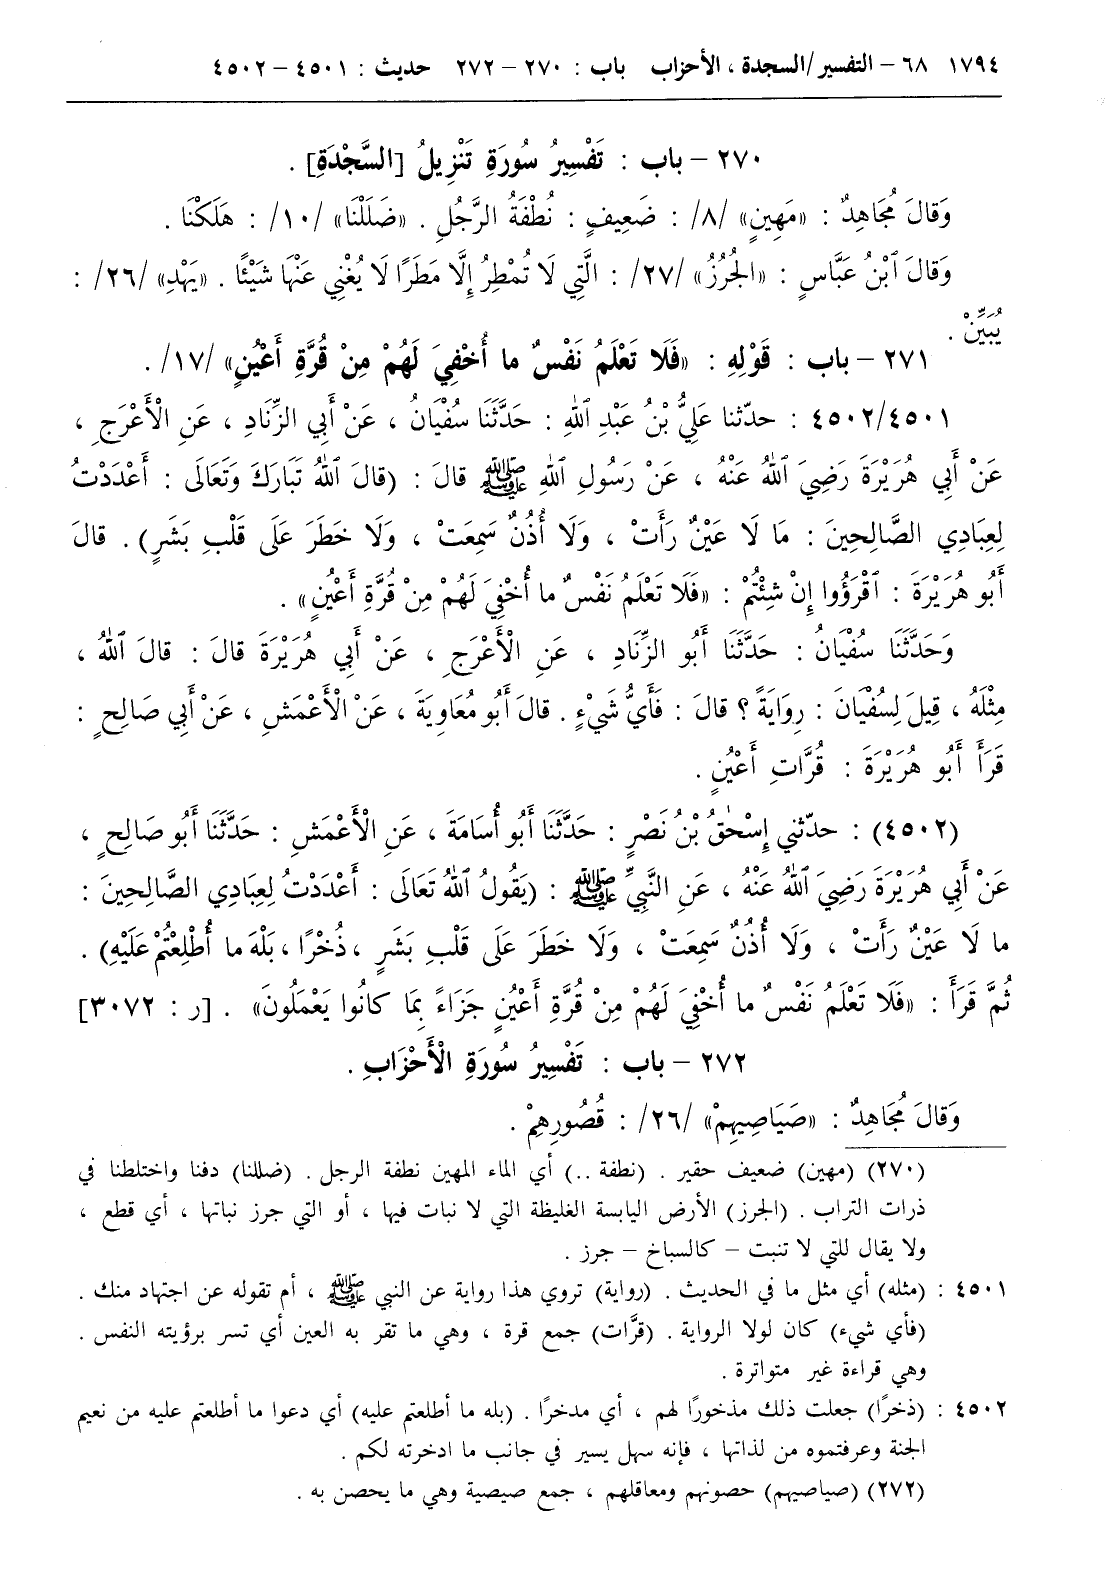 ١٧٩٤ ٦٨ – التفسير/السجدة، الأحزاب باب : ٢٧٠ – ٢٧٢ حديث : ٤٥٠١ – ٤٥٠٢
٢٧٠ – باب : تَفْسِيرُ سُورَةِ تَنْزِيلُ [السَّجْدَةِ] .
وَقالَ مُجَاهِدٌ : «مَهِينٍ» /٨/ : ضَعِيفٍ : نُطْفَةُ الرَّجُلِ . «ضَلَلْنَا» /١٠/ : هَلَكْنَا .
وَقالَ ٱبْنُ عَبَّاسٍ : «الجُرُزُ» /٢٧/ : الَّتِي لَا تُمْطِرُ إِلَّا مَطَرًا لَا يُغْنِي عَنْهَا شَيْئًا . «يَهْدِ» /٢٦/ :
يُبَيِّنْ .
٢٧١ – باب : قَوْلِهِ : «فَلَا تَعْلَمُ نَفْسٌ ما أُخْفِيَ لَهُمْ مِنْ قُرَّةِ أَعْيُنٍ» /١٧/ .
٤٥٠٢/٤٥٠١ : حدّثنا عَلِيُّ بْنُ عَبْدِ ٱللهِ : حَدَّثَنَا سُفْيَانُ ، عَنْ أَبِي الزِّنَادِ ، عَنِ الْأَعْرَجِ ،
عَنْ أَبِي هُرَيْرَةَ رَضِيَ ٱللهُ عَنْهُ ، عَنْ رَسُولِ ٱللهِ ﷺ قالَ : (قالَ ٱللهُ تَبَارَكَ وَتَعَالَى : أَعْدَدْتُ
لِعِبَادِي الصَّالِحِينَ : مَا لَا عَيْنٌ رَأَتْ ، وَلَا أُذُنٌ سَمِعَتْ ، وَلَا خَطَرَ عَلَى قَلْبِ بَشَرٍ) . قالَ
أَبُو هُرَيْرَةَ : ٱقْرَؤُوا إِنْ شِئْتُمْ : «فَلَا تَعْلَمُ نَفْسٌ ما أُخْفِيَ لَهُمْ مِنْ قُرَّةِ أَعْيُنٍ» .
وَحَدَّثَنَا سُفْيَانُ : حَدَّثَنَا أَبُو الزِّنَادِ ، عَنِ الْأَعْرَجِ ، عَنْ أَبِي هُرَيْرَةَ قالَ : قالَ ٱللهُ ،
مِثْلَهُ ، قِيلَ لِسُفْيَانَ : رِوَايَةً ؟ قالَ : فَأَيُّ شَيْءٍ . قالَ أَبُو مُعَاوِيَةَ ، عَنْ الْأَعْمَشِ ، عَنْ أَبِي صَالِحٍ :
قَرَأَ أَبُو هُرَيْرَةَ : قُرَّاتِ أَعْيُنٍ .
(٤٥٠٢) : حدّثني إِسْحٰقُ بْنُ نَصْرٍ : حَدَّثَنَا أَبُو أُسَامَةَ ، عَنِ الْأَعْمَشِ : حَدَّثَنَا أَبُو صَالِحٍ ،
عَنْ أَبِي هُرَيْرَةَ رَضِيَ ٱللهُ عَنْهُ ، عَنِ النَّبِيِّ ﷺ : (يَقُولُ ٱللهُ تَعَالَى : أَعْدَدْتُ لِعِبَادِي الصَّالِحِينَ :
ما لَا عَيْنٌ رَأَتْ ، وَلَا أُذُنٌ سَمِعَتْ ، وَلَا خَطَرَ عَلَى قَلْبِ بَشَرٍ ، ذُخْرًا ، بَلْهَ ما أُطْلِعْتُمْ عَلَيْهِ) .
ثُمَّ قَرَأَ : «فَلَا تَعْلَمُ نَفْسٌ ما أُخْفِيَ لَهُمْ مِنْ قُرَّةِ أَعْيُنٍ جَزَاءً بِمَا كانُوا يَعْمَلُونَ» . [ر : ٣٠٧٢]
٢٧٢ – باب : تَفْسِيرُ سُورَةِ الْأَحْزَابِ .
وَقالَ مُجَاهِدٌ : «صَيَاصِيهِمْ» /٢٦/ : قُصُورِهِمْ .
(٢٧٠) (مهين) ضعيف حقير . (نطفة ..) أي الماء المهين نطفة الرجل . (ضللنا) دفنا واختلطنا في
ذرات التراب . (الجرز) الأرض اليابسة الغليظة التي لا نبات فيها ، أو التي جرز نباتها ، أي قطع ،
ولا يقال للتي لا تنبت – كالسباخ – جرز .
٤٥٠١ : (مثله) أي مثل ما في الحديث . (رواية) تروي هذا رواية عن النبي ﷺ ، أم تقوله عن اجتهاد منك .
(فأي شيء) كان لولا الرواية . (قرَّات) جمع قرة ، وهي ما تقر به العين أي تسر برؤيته النفس .
وهي قراءة غير متواترة .
٤٥٠٢ : (ذخرًا) جعلت ذلك مذخورًا لهم ، أي مدخرًا . (بله ما أطلعتم عليه) أي دعوا ما أطلعتم عليه من نعيم
الجنة وعرفتموه من لذاتها ، فإنه سهل يسير في جانب ما ادخرته لكم .
(٢٧٢) (صياصيهم) حصونهم ومعاقلهم ، جمع صيصية وهي ما يحصن به .